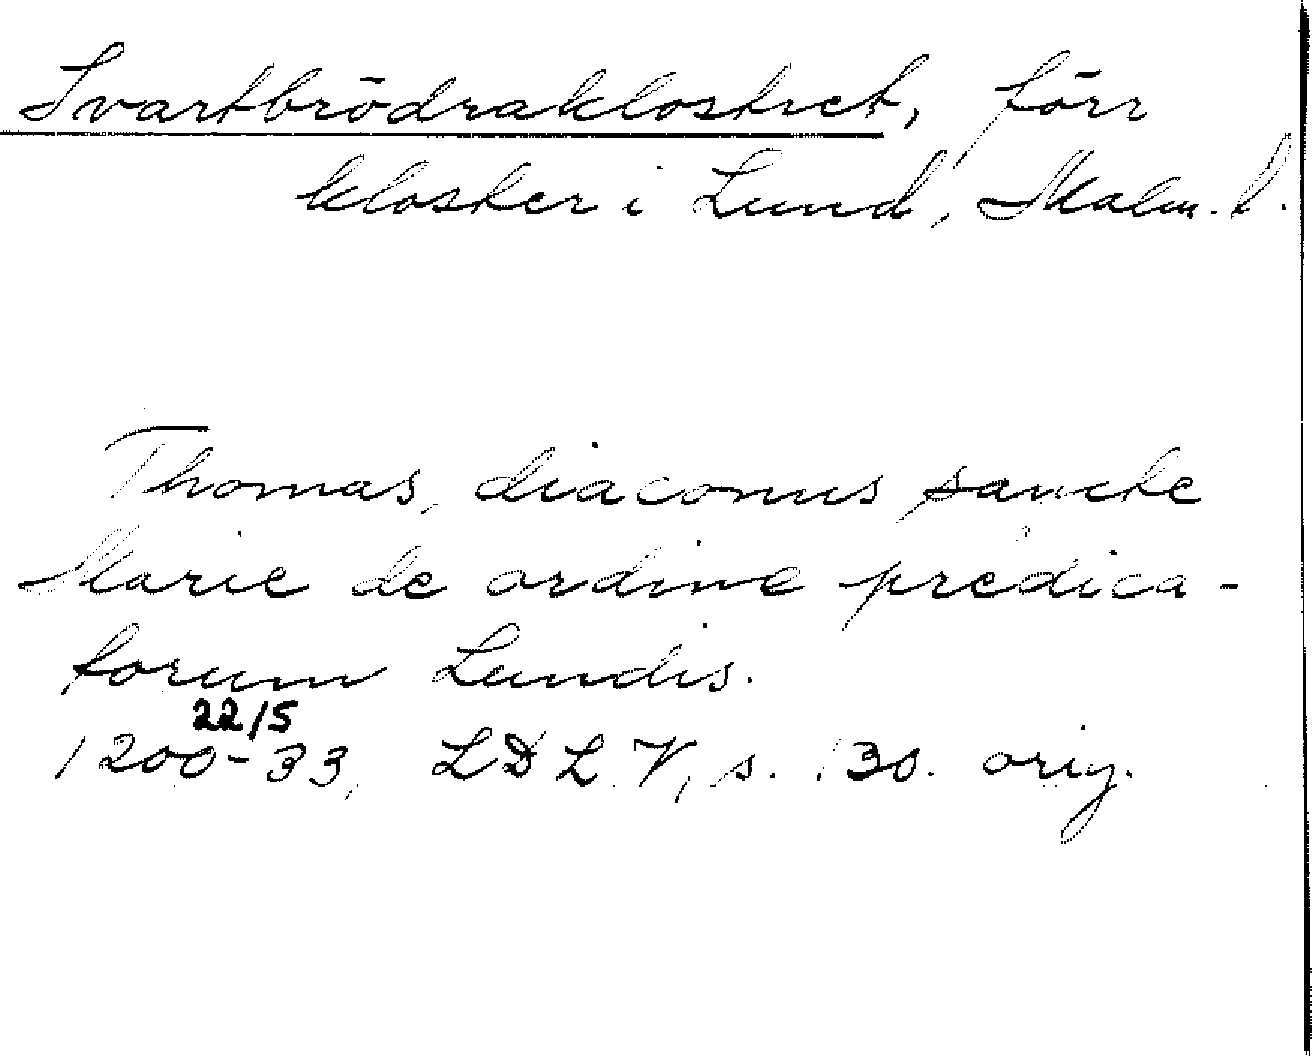 Svartbrödraklostret, förr
kloster i Lund, Malm. l.
Thomas, diaconus sancte
Marie de ordine predica-
torum Lundis.
22/5
1200-33, LDL V, s. 130. orig.